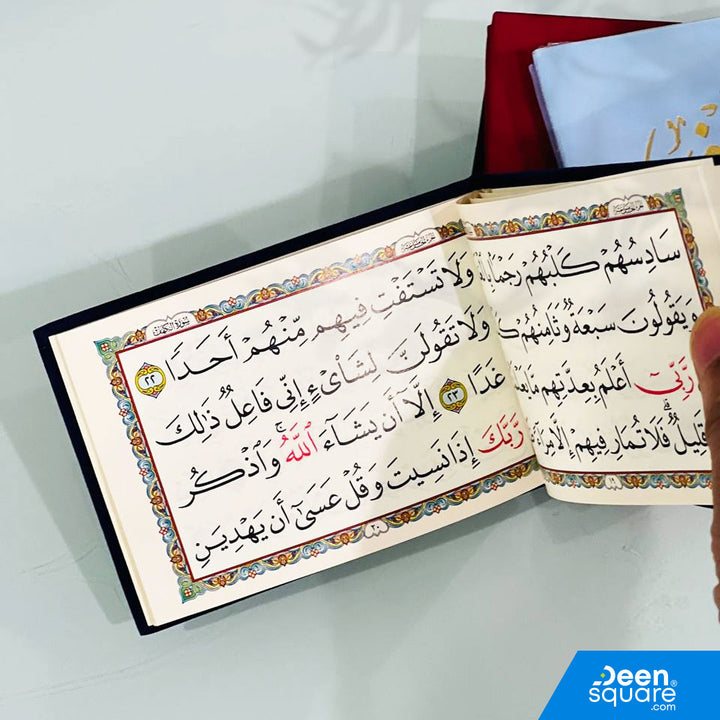 سَادِسُهُمْ كَلْبُهُمْ رَجْمًۢا
وَيَقُولُونَ سَبْعَةٌ وَثَامِنُهُمْ
رَّبِّىٓ أَعْلَمُ بِعِدَّتِهِم
قَلِيلٌ ۗ فَلَا تُمَارِ فِيهِمْ إِلَّا
١٩
سُورَةُ الكَهْف
وَلَا تَسْتَفْتِ فِيهِم مِّنْهُمْ أَحَدًا ٢٢
وَلَا تَقُولَنَّ لِشَا۟ىْءٍ إِنِّى فَاعِلٌ ذَٰلِكَ
غَدًا ٢٣ إِلَّآ أَن يَشَآءَ ٱللَّهُ ۚ وَٱذْكُر
رَّبَّكَ إِذَا نَسِيتَ وَقُلْ عَسَىٰٓ أَن يَهْدِيَنِ
٢٠
Deen
square®
.com